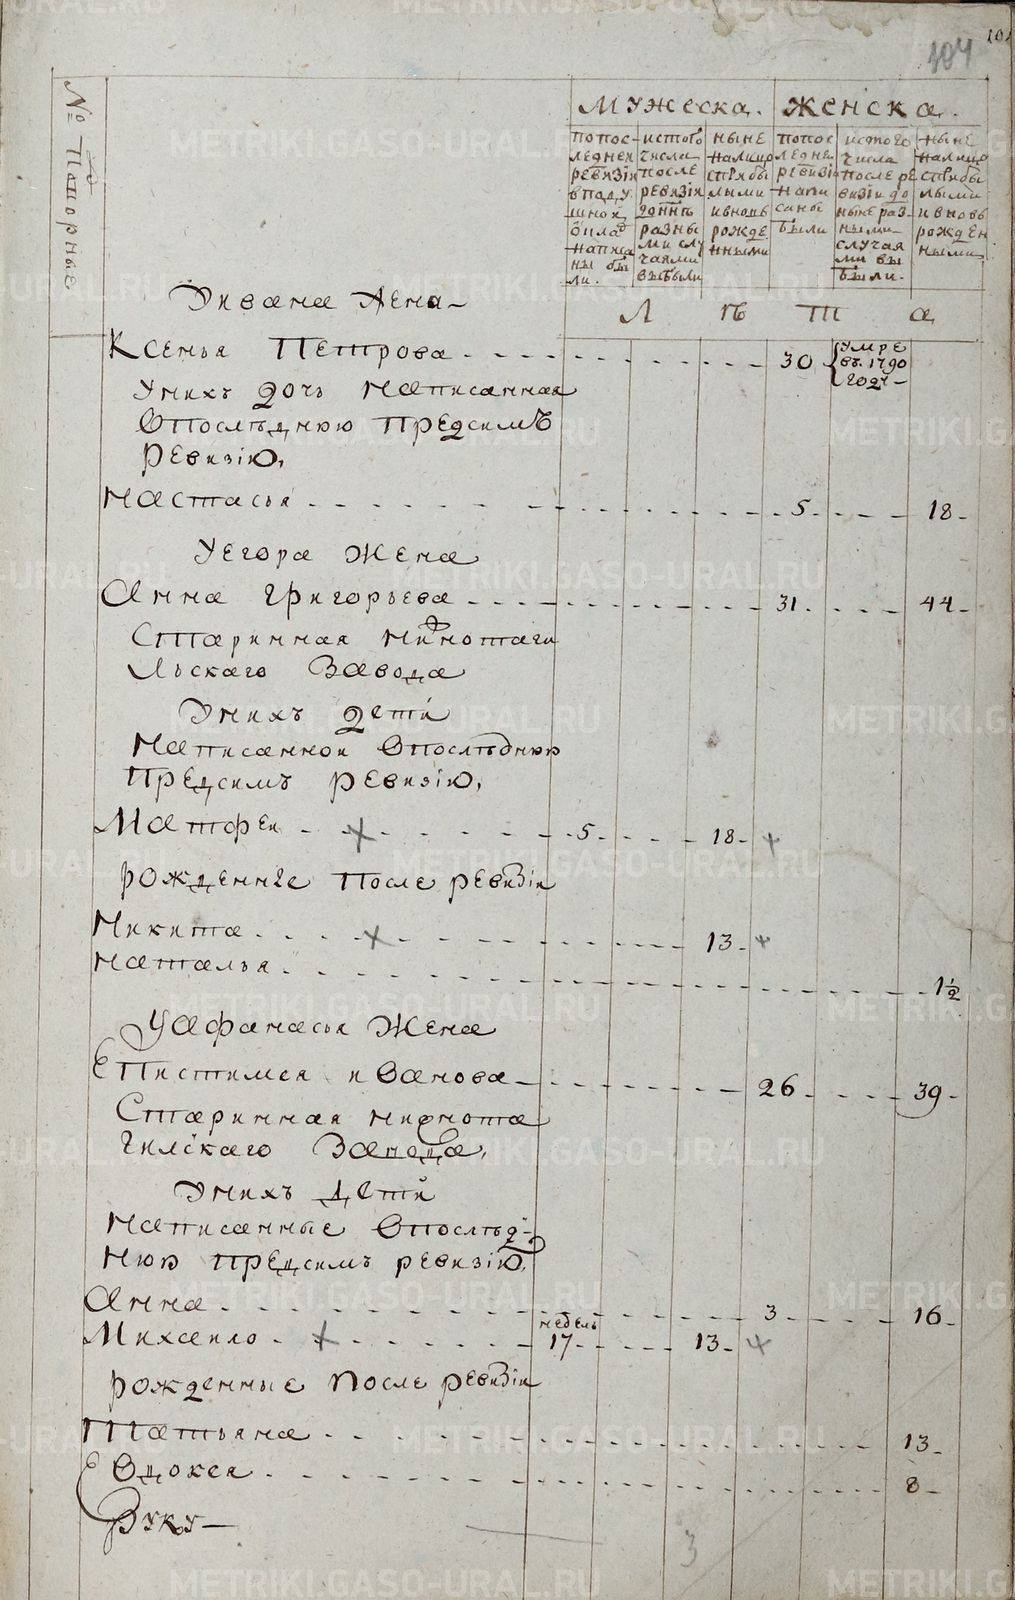 101
104
№ Паполорные
мужеска. женска.
попос-
леднеи
ревизіи
вподу
шнои
окладъ
написа
ны бы
ли.
истого
числа
после
ревизіи
доннѣ
разны
ми слу
чаями
выбыли
ныне
налицо
сприбы
лыми
ивновь
рожде
нными
попос
ледне
ревизіи
напи
саны
были
истого
числа
после ре
визіи до
ныне раз
ными
случая
ми вы
были.
ныне
налицо
сприбы
лыми
ивновь
рожден
ными
Л ѣ т а
Уивана жена
Ксенья Петрова 30 умре въ. 1790 году
Унихъ дочь написанная
Впослѣднюю предсимъ
ревизію,
настасья 5. 18
Уегора жена
Анна григорьева 31. 44
Старинная нижнотаги
льскаго Завода
Унихъ дети
написаннои Впослѣднюю
предсимъ ревизію,
Матфеи 5 18
рожденные после ревизіи
Никита 13
наталья 1 1/2
Уафанасья жена
Епистимея иванова 26 39
Старинная нижнота
гилскаго Завода,
Унихъ дети
написанные Впослѣд-
нюю предсимъ ревизію,
Анна 3 16
Михаило недель 17 13
рожденные после ревизіи
Татьяна 13
Евдокея 8
Руку
3
METRIKI.GASO-URAL.RU